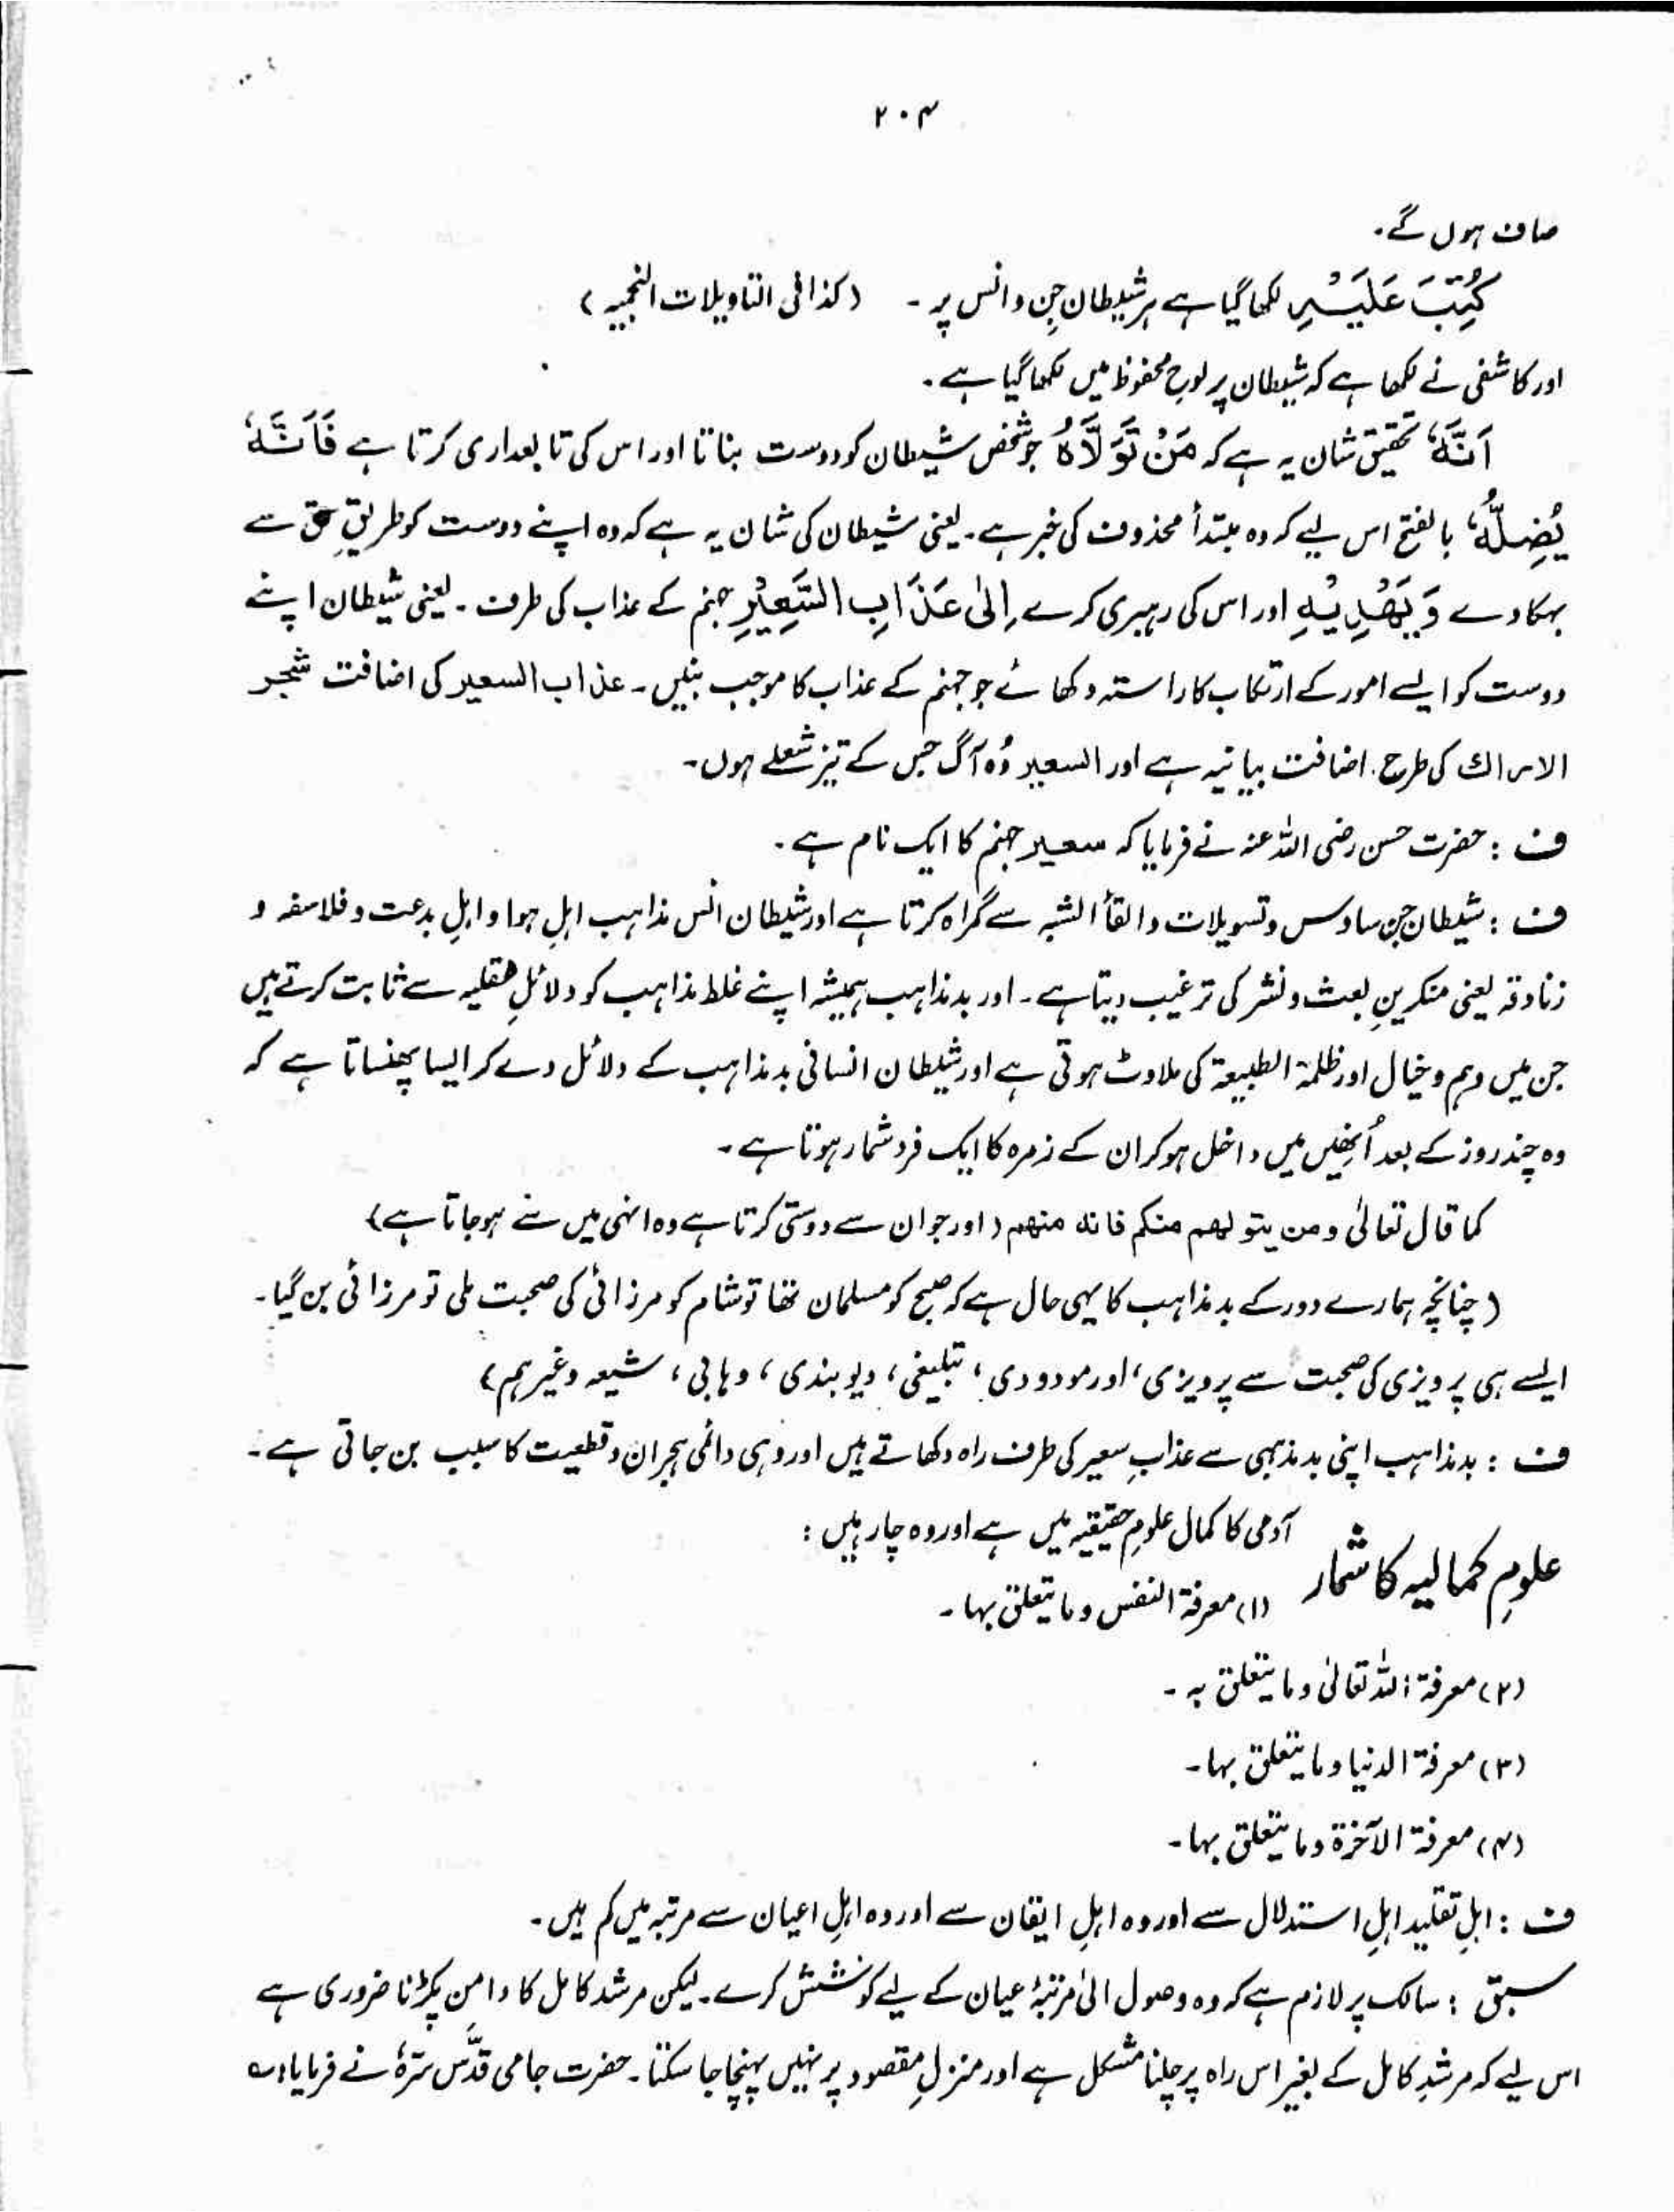 ۲۰۴
صاف ہوں گے۔
كُتِبَ عَلَيْهِ لکھا گیا ہے ہر شیطان جِن و انس پر ۔ (کذا فی التاویلات النجمیہ)
اور کاشفی نے لکھا ہے کہ شیطان پر لوحِ محفوظ میں لکھا گیا ہے۔
اَنَّهٗ تحقیق شان یہ ہے کہ مَنْ تَوَلَّاهُ جو شخص شیطان کو دوست بناتا اور اس کی تابعداری کرتا ہے فَاَنَّهٗ
يُضِلُّهٗ بالفتح اس لیے کہ وہ مبتدأ محذوف کی خبر ہے۔ یعنی شیطان کی شان یہ ہے کہ وہ اپنے دوست کو طریقِ حق سے
بہکا دے وَيَهْدِيْهِ اور اس کی رہبری کرے اِلٰى عَذَابِ السَّعِيْرِ جہنم کے عذاب کی طرف ۔ یعنی شیطان اپنے
دوست کو ایسے امور کے ارتکاب کا راستہ دکھائے جو جہنم کے عذاب کا موجب بنیں۔ عذاب السعیر کی اضافت شجر
الاراك کی طرح اضافت بیانیہ ہے اور السعیر وُہ آگ جس کے تیز شعلے ہوں۔
ف : حضرت حسن رضی اللہ عنہ نے فرمایا کہ سعیر جہنم کا ایک نام ہے ۔
ف : شیطان جِن وساوس و تسویلات و القأ الشبہ سے گمراہ کرتا ہے اور شیطان انس مذاہب اہلِ ہوا و اہلِ بدعت و فلاسفہ و
زنادقہ یعنی منکرینِ بعث و نشر کی ترغیب دیتا ہے ۔ اور بدمذاہب ہمیشہ اپنے غلط مذاہب کو دلائلِ عقلیہ سے ثابت کرتے ہیں
جن میں وہم و خیال اور ظلمۃ الطبیعۃ کی ملاوٹ ہوتی ہے اور شیطان انسانی بدمذاہب کے دلائل دے کر ایسا پھنساتا ہے کہ
وہ چند روز کے بعد اُنھیں میں داخل ہو کر ان کے زمرہ کا ایک فرد شمار ہوتا ہے ۔
کما قال تعالیٰ ومن یتولھم منکم فانہ منھم (اور جو ان سے دوستی کرتا ہے وہ انہی میں سے ہو جاتا ہے)
(چنانچہ ہمارے دور کے بدمذاہب کا یہی حال ہے کہ صبح کو مسلمان تھا تو شام کو مرزائی کی صحبت ملی تو مرزائی بن گیا۔
ایسے ہی پرویزی کی صحبت سے پرویزی ، اور مودودی ، تبلیغی ، دیوبندی ، وہابی ، شیعہ وغیرہم)
ف : بدمذاہب اپنی بدمذہبی سے عذابِ سعیر کی طرف راہ دکھاتے ہیں اور وہی دائمی ہجران و قطعیت کا سبب بن جاتی ہے ۔
علومِ کمالیہ کا شمار آدمی کا کمال علومِ حقیقیہ میں ہے اور وہ چار ہیں :
(۱) معرفۃ النفس وما یتعلق بہا ۔
(۲) معرفۃ اللہ تعالیٰ وما یتعلق بہ ۔
(۳) معرفۃ الدنیا وما یتعلق بہا ۔
(۴) معرفۃ الآخرۃ وما یتعلق بہا ۔
ف : اہلِ تقلید اہلِ استدلال سے اور وہ اہلِ ایقان سے اور وہ اہلِ اعیان سے مرتبہ میں کم ہیں ۔
سبق : سالک پر لازم ہے کہ وہ وصول الیٰ مرتبۂ عیان کے لیے کوشش کرے ۔ لیکن مرشد کامل کا دامن پکڑنا ضروری ہے
اس لیے کہ مرشدِ کامل کے بغیر اس راہ پر چلنا مشکل ہے اور منزلِ مقصود پر نہیں پہنچا جا سکتا ۔ حضرت جامی قدّس سرّہٗ نے فرمایا :